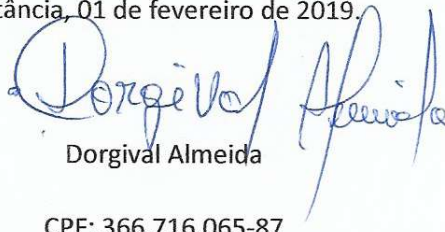 tância, 01 de fevereiro de 2019.
Dorgival Almeida
Dorgival Almeida
CPF: 366.716.065-87